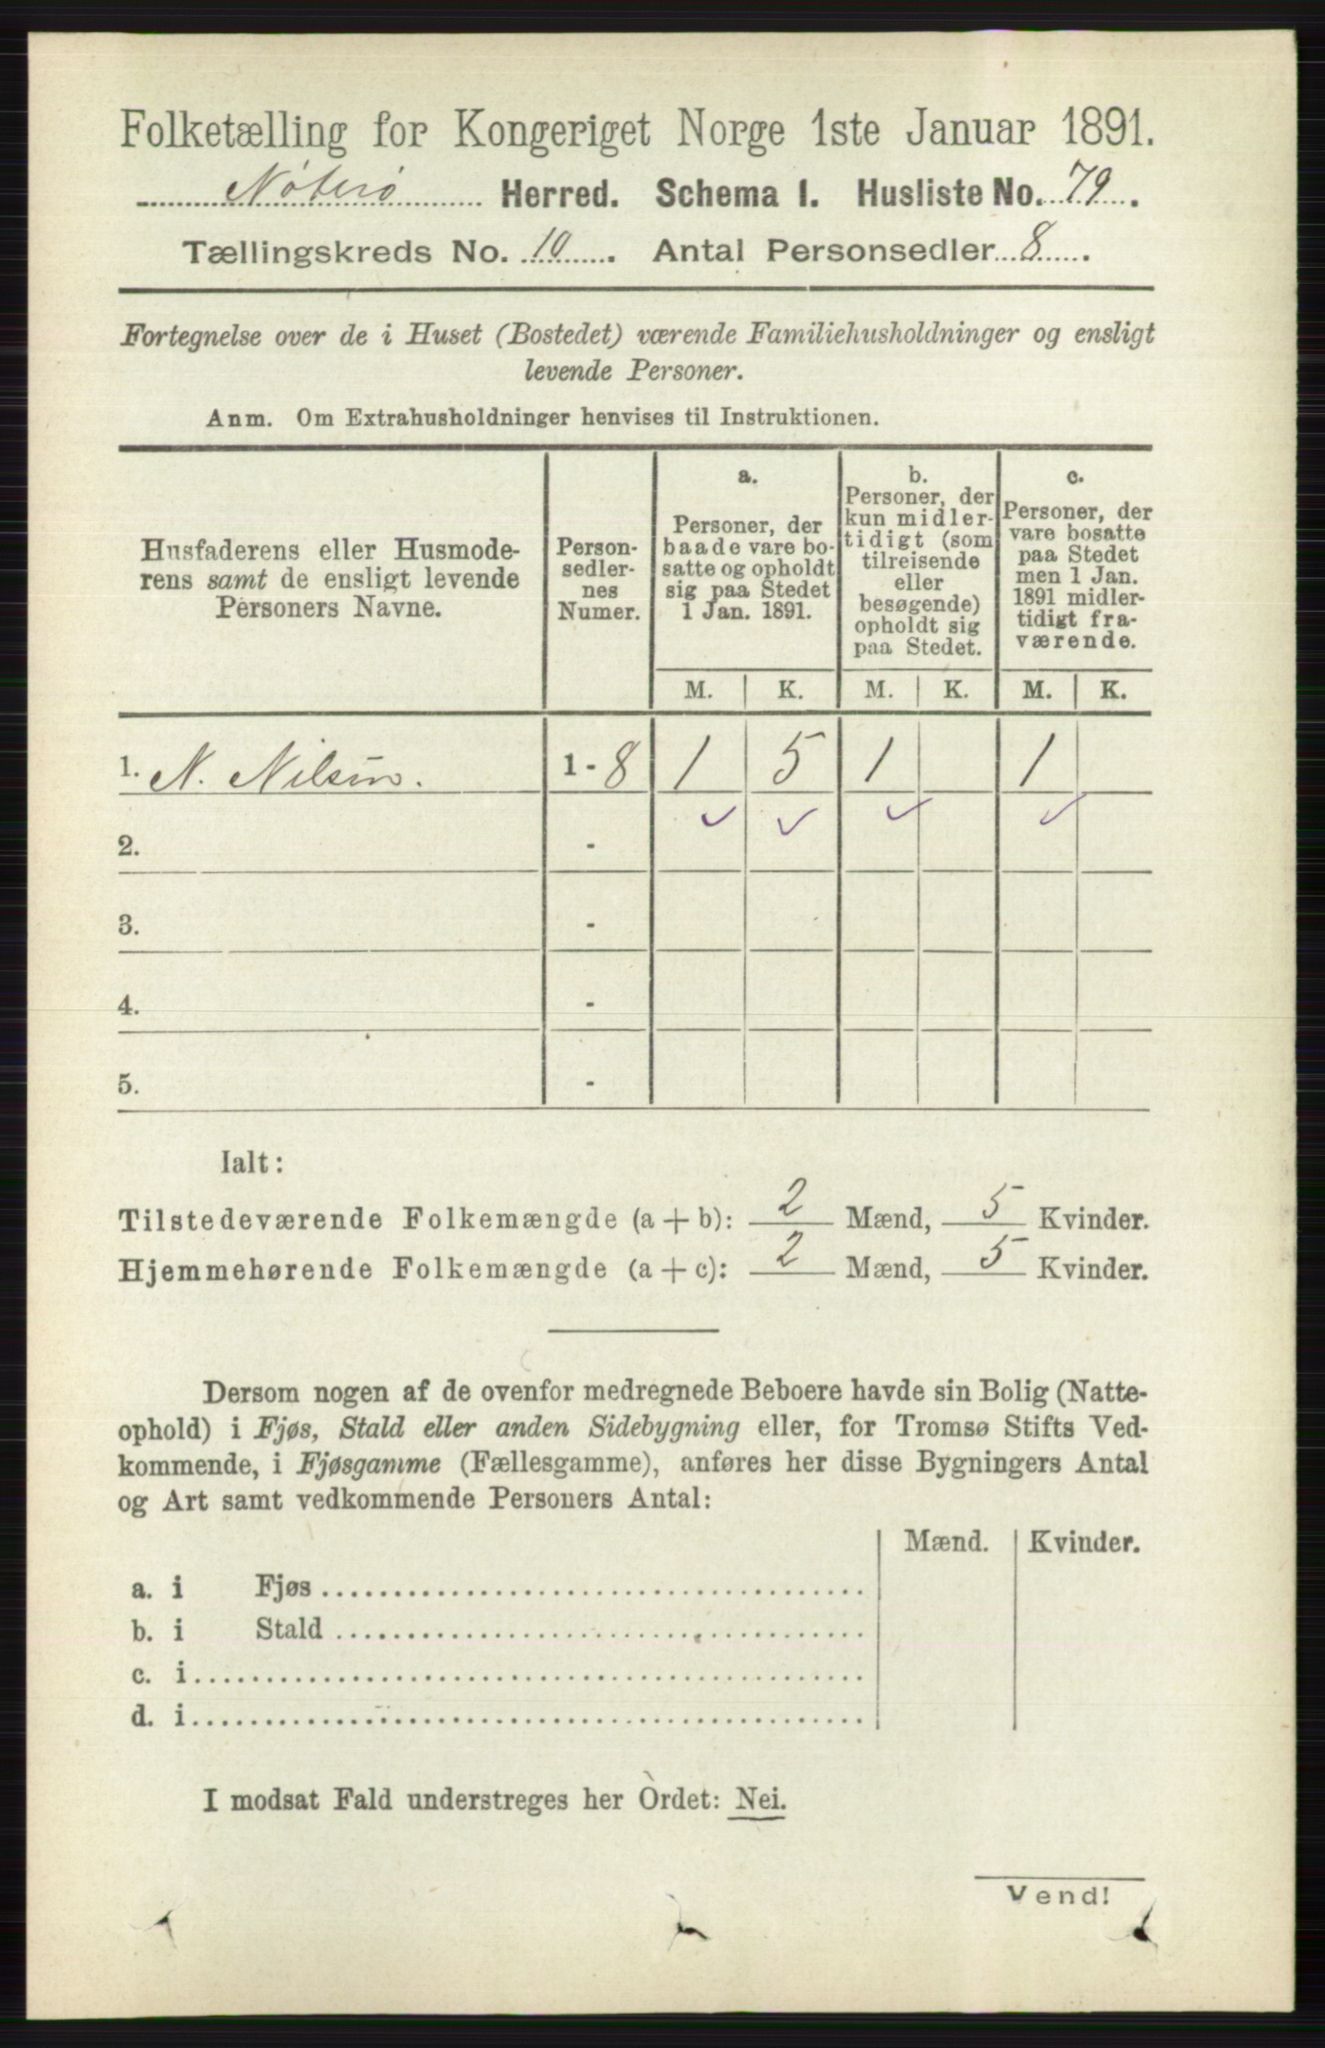 Folketælling for Kongeriget Norge 1ste Januar 1891.
Nøterø Herred. Schema I. Husliste No. 79.
Tællingskreds No. 10. Antal Personsedler 8.
Fortegnelse over de i Huset (Bostedet) værende Familiehusholdninger og ensligt
levende Personer.
Anm. Om Extrahusholdninger henvises til Instruktionen.
Husfaderens eller Husmode-
rens samt de ensligt levende
Personers Navne.
Person-
sedler-
nes
Numer.
a.
Personer, der
baade vare bo-
satte og opholdt
sig paa Stedet
1 Jan. 1891.
b.
Personer, der
kun midler-
tidigt (som
tilreisende
eller
besøgende)
opholdt sig
paa Stedet.
c.
Personer, der
vare bosatte
paa Stedet
men 1 Jan.
1891 midler-
tidigt fra-
værende.
M. K. M. K. M. K.
1. N. Nilsen. 1 - 8 1 5 1 1
2. -
3. -
4. -
5. -
Ialt:
Tilstedeværende Folkemængde (a + b): 2 Mænd, 5 Kvinder.
Hjemmehørende Folkemængde (a + c): 2 Mænd, 5 Kvinder.
Dersom nogen af de ovenfor medregnede Beboere havde sin Bolig (Natte-
ophold) i Fjøs, Stald eller anden Sidebygning eller, for Tromsø Stifts Ved-
kommende, i Fjøsgamme (Fællesgamme), anføres her disse Bygningers Antal
og Art samt vedkommende Personers Antal:
Mænd. Kvinder.
a. i Fjøs
b. i Stald
c. i
d. i
I modsat Fald understreges her Ordet: Nei.
Vend!